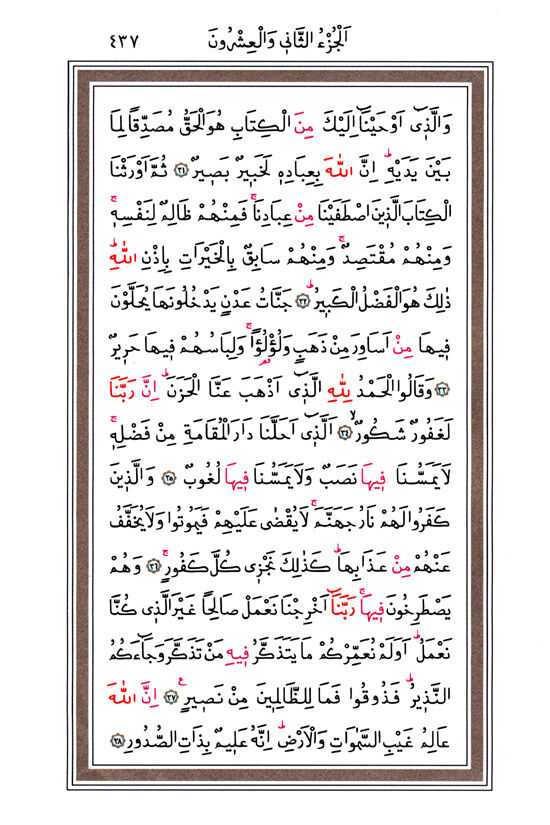 اَلْجُزْءُ الثَّانِي وَالْعِشْرُونَ ٤٣٧
وَالَّذٖٓى اَوْحَيْنَٓا اِلَيْكَ مِنَ الْكِتَابِ هُوَ الْحَقُّ مُصَدِّقًا لِمَا
بَيْنَ يَدَيْهِ ۜ اِنَّ اللّٰهَ بِعِبَادِهٖ لَخَبٖيرٌ بَصٖيرٌ ﴿٣١﴾ ثُمَّ اَوْرَثْنَا
الْكِتَابَ الَّذٖينَ اصْطَفَيْنَا مِنْ عِبَادِنَا ۚ فَمِنْهُمْ ظَالِمٌ لِنَفْسِهٖ ۚ
وَمِنْهُمْ مُقْتَصِدٌ ۚ وَمِنْهُمْ سَابِقٌ بِالْخَيْرَاتِ بِاِذْنِ اللّٰهِ ۜ
ذٰلِكَ هُوَ الْفَضْلُ الْكَبٖيرُ ۜ ﴿٣٢﴾ جَنَّاتُ عَدْنٍ يَدْخُلُونَهَا يُحَلَّوْنَ
فٖيهَا مِنْ اَسَاوِرَ مِنْ ذَهَبٍ وَلُؤْلُؤًا ۚ وَلِبَاسُهُمْ فٖيهَا حَرٖيرٌ
﴿٣٣﴾ وَقَالُوا الْحَمْدُ لِلّٰهِ الَّذٖٓى اَذْهَبَ عَنَّا الْحَزَنَ ۜ اِنَّ رَبَّنَا
لَغَفُورٌ شَكُورٌ ۙ ﴿٣٤﴾ اَلَّذٖٓى اَحَلَّنَا دَارَ الْمُقَامَةِ مِنْ فَضْلِهٖ ۚ
لَا يَمَسُّنَا فٖيهَا نَصَبٌ وَلَا يَمَسُّنَا فٖيهَا لُغُوبٌ ﴿٣٥﴾ وَالَّذٖينَ
كَفَرُوا لَهُمْ نَارُ جَهَنَّمَ ۚ لَا يُقْضٰى عَلَيْهِمْ فَيَمُوتُوا وَلَا يُخَفَّفُ
عَنْهُمْ مِنْ عَذَابِهَا ۜ كَذٰلِكَ نَجْزٖى كُلَّ كَفُورٍ ۚ ﴿٣٦﴾ وَهُمْ
يَصْطَرِخُونَ فٖيهَا ۚ رَبَّنَٓا اَخْرِجْنَا نَعْمَلْ صَالِحًا غَيْرَ الَّذٖى كُنَّا
نَعْمَلُ ۜ اَوَلَمْ نُعَمِّرْكُمْ مَا يَتَذَكَّرُ فٖيهِ مَنْ تَذَكَّرَ وَجَٓاءَكُمُ
النَّذٖيرُ ۜ فَذُوقُوا فَمَا لِلظَّالِمٖينَ مِنْ نَصٖيرٍ ﴿٣٧﴾ اِنَّ اللّٰهَ
عَالِمُ غَيْبِ السَّمٰوَاتِ وَالْاَرْضِ ۜ اِنَّهُ عَلٖيمٌ بِذَاتِ الصُّدُورِ ﴿٣٨﴾